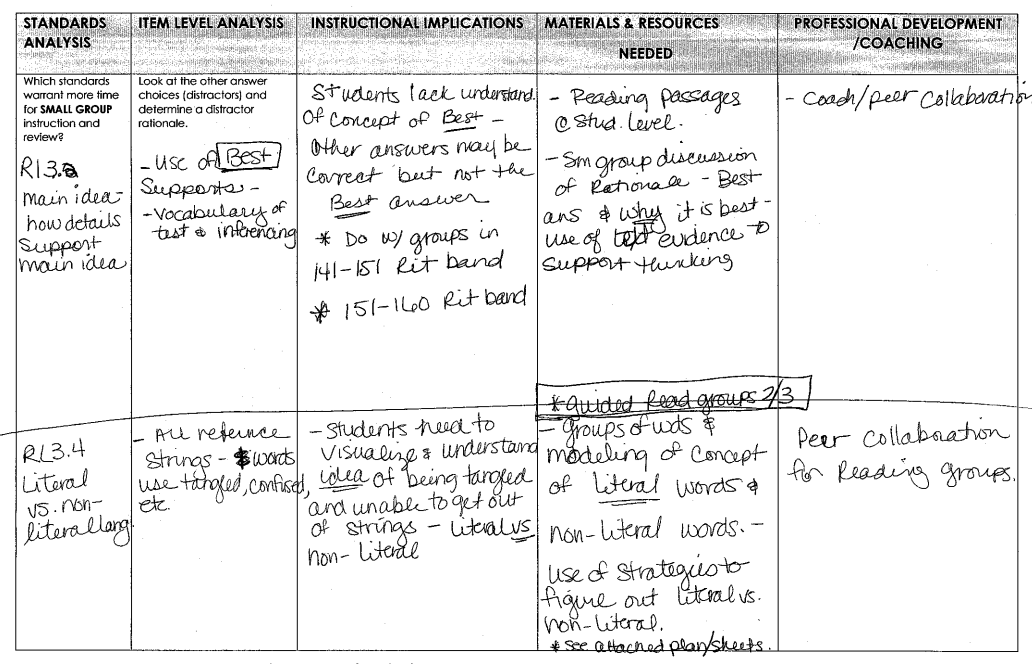 STANDARDS
ANALYSIS
ITEM LEVEL ANALYSIS
INSTRUCTIONAL IMPLICATIONS
MATERIALS & RESOURCES
NEEDED
PROFESSIONAL DEVELOPMENT
/COACHING
Which standards
warrant more time
for SMALL GROUP
instruction and
review?
RI3.2
main idea-
how details
Support
main idea
Look at the other answer
choices (distractors) and
determine a distractor
rationale.
- Use of Best
Supports -
- Vocabulary of
test & inferencing
Students lack understand.
Of concept of Best -
Other answers may be
Correct but not the
Best answer
* Do w/ groups in
141-151 Rit band
* 151-160 Rit band
- Reading Passages
@ Stud. Level.
- Sm group discussion
of Rationale - Best
ans & why it is best -
use of text evidence to
Support thinking
* guided Read groups 2/3
- Coach/peer Collaboration
RL3.4
Literal
vs. non-
literal lang
- All refernce
Strings - words
use tangled, confused,
etc.
- Students need to
Visualize & understand
idea of being tangled
and unable to get out
of strings - Literal vs
non-literal
- groups of wds &
modeling of Concept
of literal words &
non-literal words. -
use of Strategies to
figure out literal vs.
non-literal.
* see attached plan/sheets.
Peer Collaboration
for Reading groups.